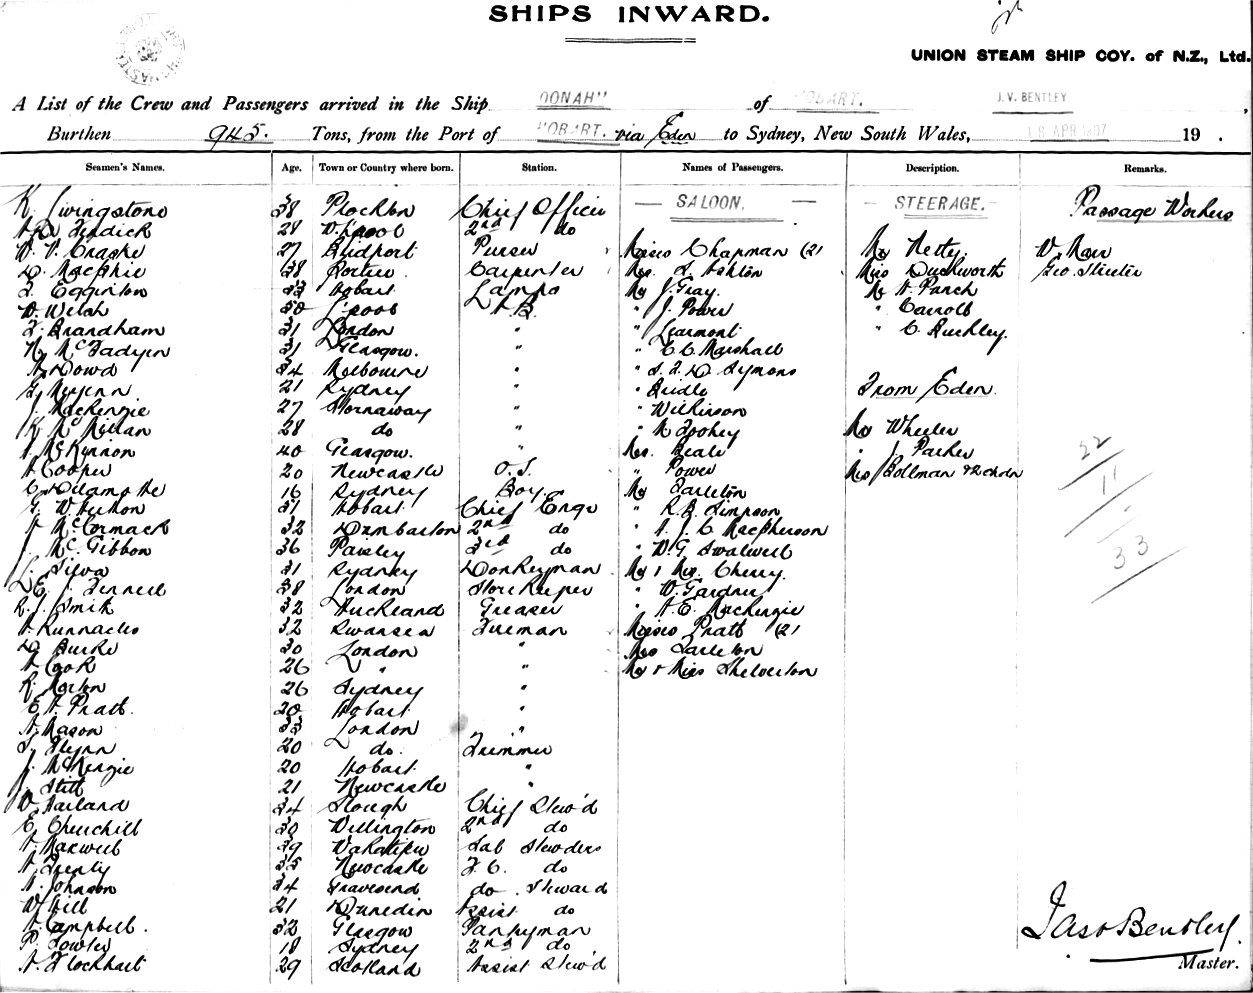 SHIPS INWARD.
UNION STEAM SHIP COY. of N.Z., Ltd.
A List of the Crew and Passengers arrived in the Ship OONAH" of HOBART. J.V. BENTLEY,
Burthen 945. Tons, from the Port of HOBART. via Eden to Sydney, New South Wales, 18 APR 1907 19 .
Seamen's Names. Age. Town or Country where born. Station. Names of Passengers. Description. Remarks.
K Livingstone 38 Plockton Chief Officer — SALOON. — — STEERAGE. — Passage Workers
28 L'pool 2nd do
27 Bridport Purser Misses Chapman (2) Mr Netty.
D. MacPhie 38 Carpenter Mrs. S. Ashton Miss Duckworth Geo. Streeter
J. Egginton 33 Hobart Lamps Mr J. Gray. Mr H. Panch
W. Welsh 50 L'pool A.B. " J. Power " Carroll
J. Brandham 31 London " " Learmont " C. Buckley.
N. McFadyen 31 Glasgow. " " C. C. Marshall
A. Dowd 34 Melbourne " " S. J. D. Symons
21 Sydney " " From Eden.
J. MacKenzie 27 Stornaway " " Wilkinson
K. McMillan 28 do " " M Toohey Mr Wheeler
A. McKinnon 40 Glasgow. " Mrs. Beale " J. Parker
A Cooper 20 Newcastle O.S. " Power Mrs Bollman & 2 chdn 22
C. Delamothe 16 Sydney Boy. Mr Tarleton 11
31 Hobart Chief Engr " R. B. Simpson
A. McCormack 32 Dumbarton 2nd do " A. J. C. MacPherson
J. McGibbon 36 Paisley 3rd do " W. G. Swalwell 33
J. Silva 31 Sydney Donkeyman Mr & Mrs. Cherry.
L. E. J. Fennell 38 London Storekeeper " W. Gardner
R. J. Smith 32 Auckland Greaser " A. E. Mackenzie
A. Runnacles 32 Swansea Fireman Misses Pratt (2)
D. Burke 30 London " Mrs Tarleton
A Cook 26 " " Mr & Miss Shelverton
R. Morton 26 Sydney "
E. A. Pratt. 20 Hobart "
A. Mason 33 London "
J. Flynn 20 do. Trimmer
J. McKenzie 20 Hobart "
J. Stitt 21 Newcastle "
W. Farland 34 Slough Chief Stew'd
C. Churchill 30 Wellington 2nd do
A. Maxwell 39 Wakatipu Sal Stewdess
35 Newcastle F.C. do
A. Johnson 34 Gravesend do. Steward
W. Hill 21 Dunedin Assist do
A. Campbell. 32 Glasgow Pantryman
P. Fowler 18 Sydney 2nd do
A. F. Lockhart 29 Scotland Assist Stew'd
Jas V Bentley.
Master.